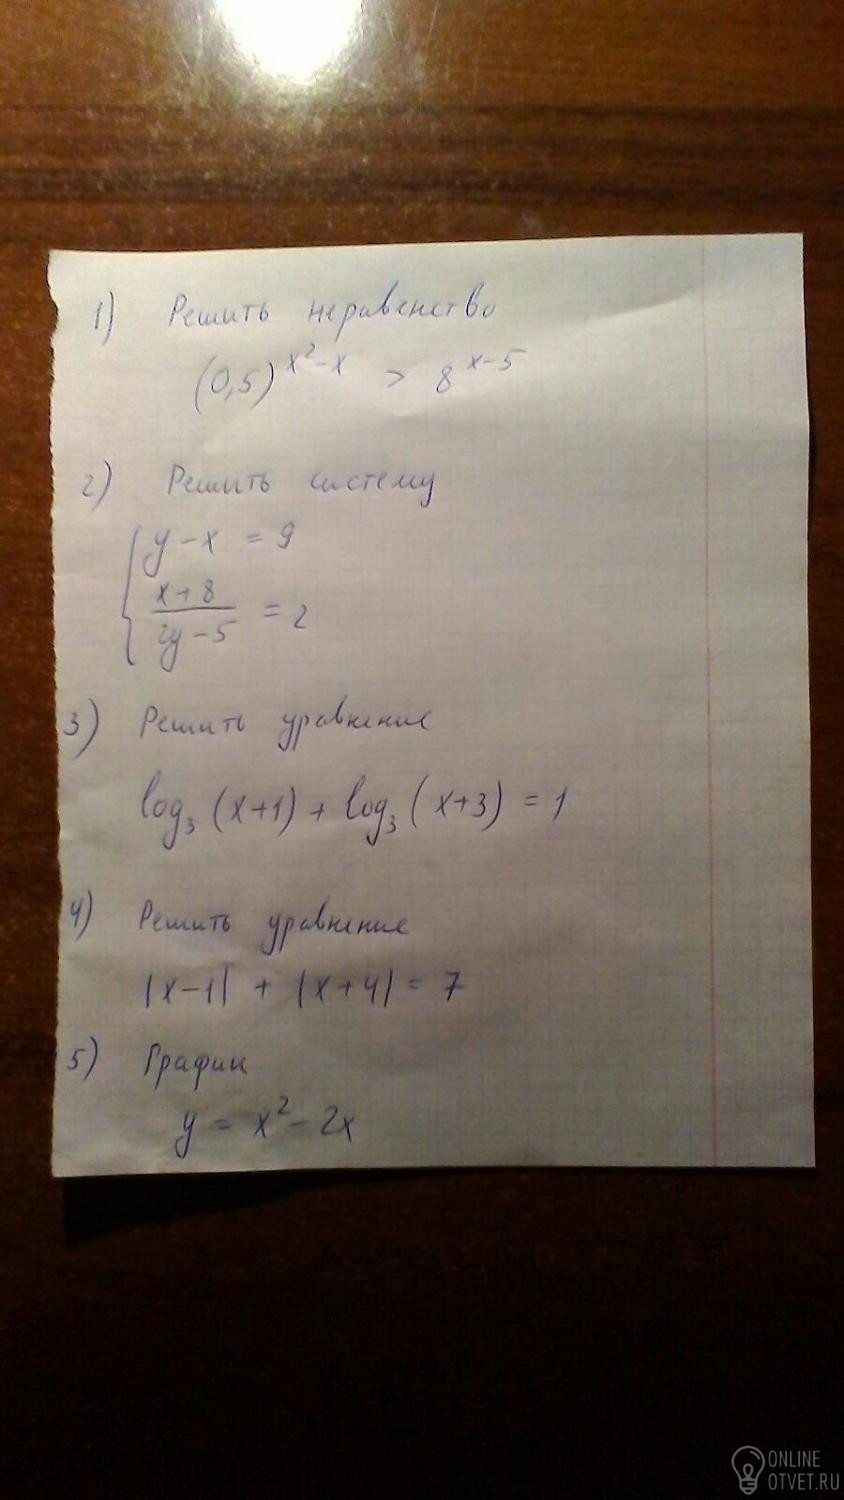 1) Решить неравенство
(0,5)^{x^2-x} > 8^{x-5}
2) Решить систему
y-x = 9
\frac{x+8}{2y-5} = 2
3) Решить уравнение
log_3 (x+1) + log_3 (x+3) = 1
4) Решить уравнение
|x-1| + |x+4| = 7
5) График
y = x^2 - 2x
ONLINE
OTVET.RU